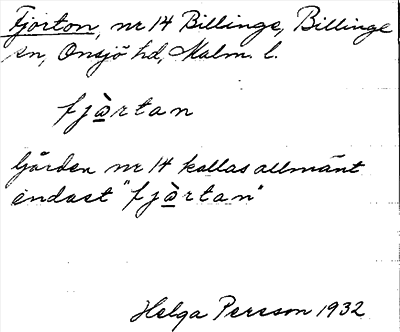 Fjorton, nr 14 Billinge, Billinge
sn, Onsjö hd, Malm. l.
fjàrtan
Gården nr 14 kallas allmänt
endast "fjàrtan"
Helga Persson 1932